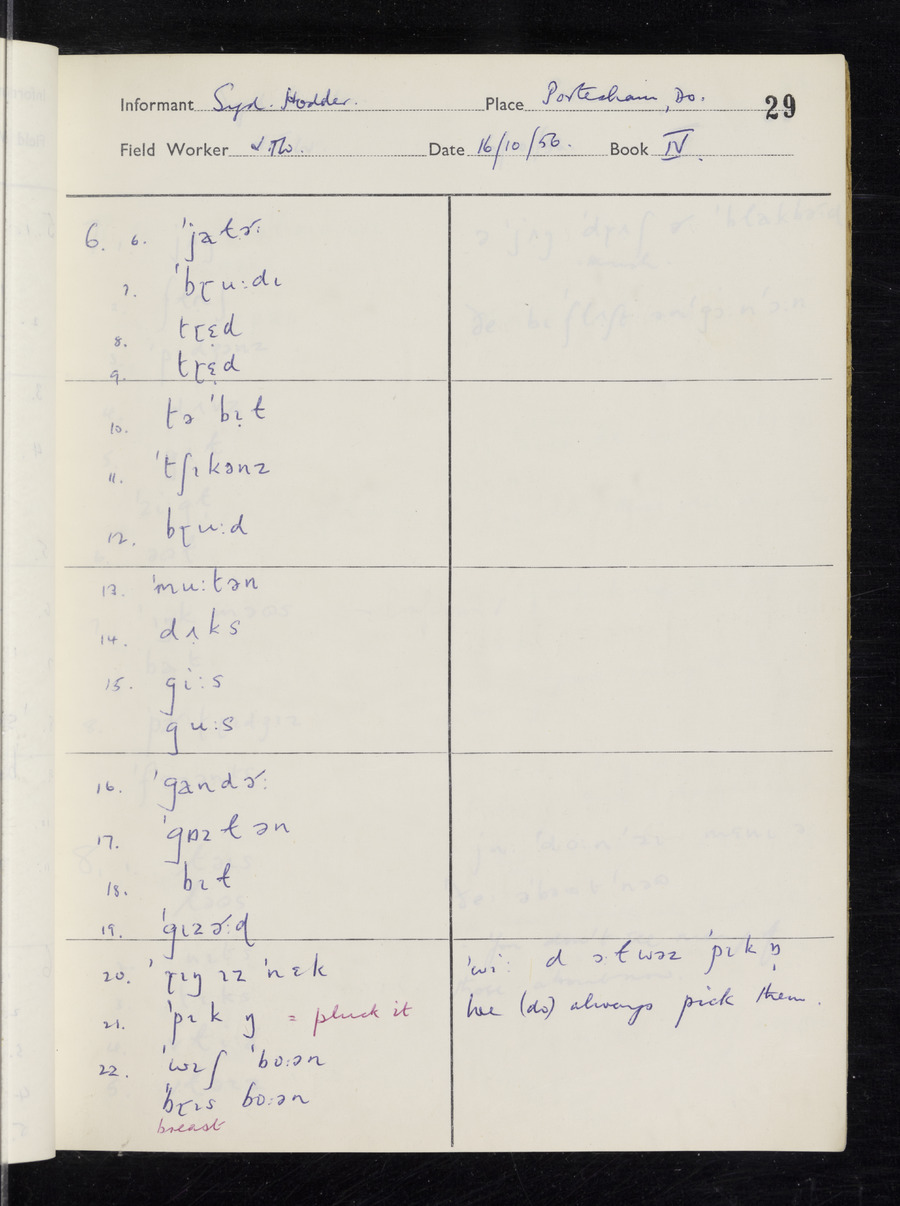 Informant Syd. Hodder. Place Portesham, Do. 29
Field Worker Date 16/10/56. Book IV.
6. 6. ˈjatɚː
7. ˈbɽuːdɩ
8. tɽɛ̣d
9. tɽɛ̣d
10. tə ˈbɪ̣t
11. ˈtʃɩkənz
12. bɽuːd
13. ˈmuːtən
14. dʌ̣ks
15. giːs
guːs
16. ˈgandɚː
17. ˈgɒztən
18. bɪt
19. ˈgɩzɚːɖ
20. ˈɽɪŋ ɪz ˈnɛk
21. ˈpɪk ŋ = pluck it
22. ˈwɪʃ ˈboːən
ˈbɽɪs boːən
breast
ˈwiː d ɔtwəz ˈpɪk ŋ̩
we (do) always pick them.